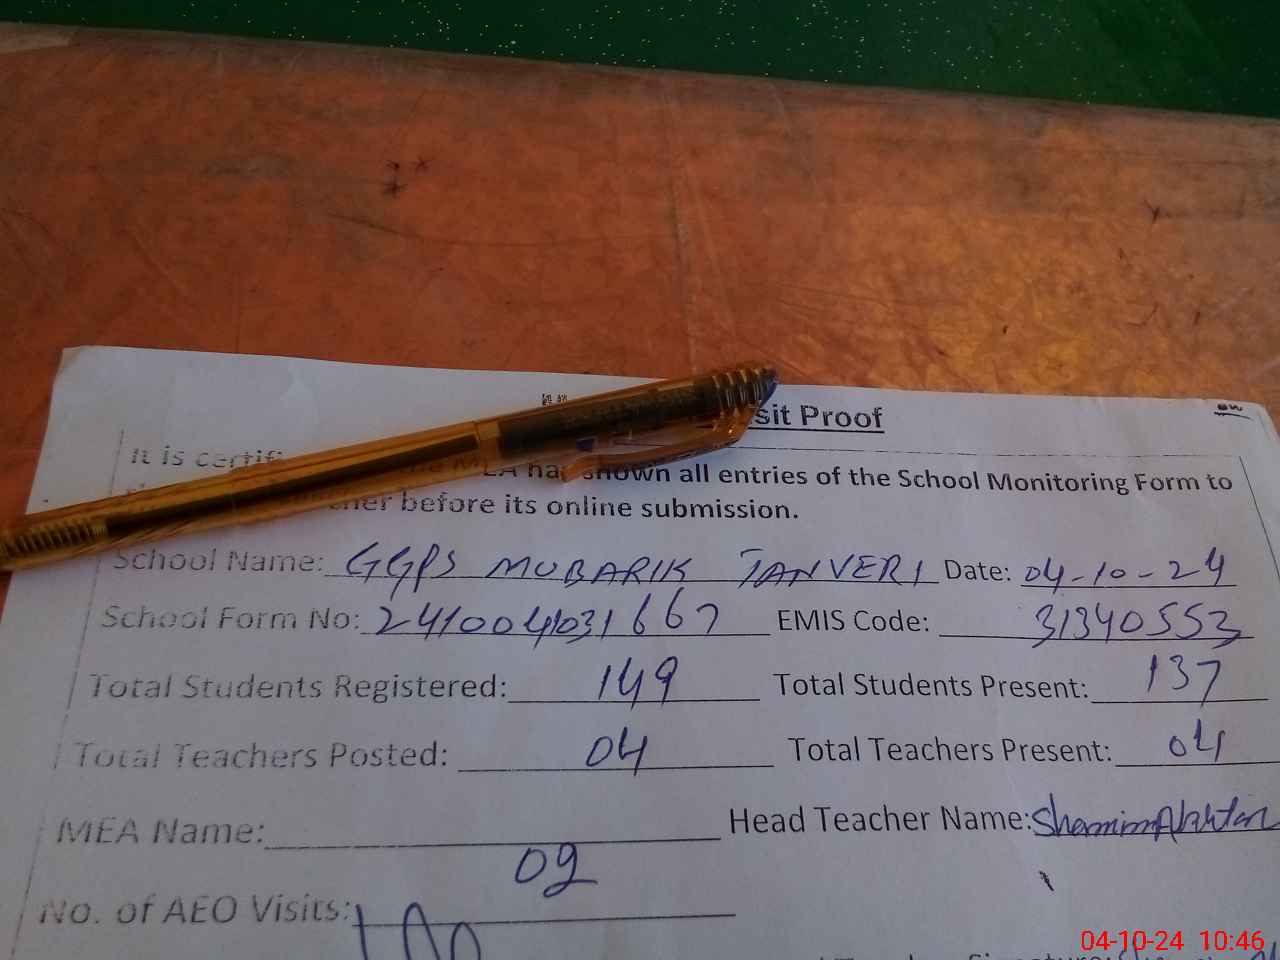 sit Proof
It is certif the MEA has shown all entries of the School Monitoring Form to
her before its online submission.
School Name: GGPS MUBARIK TANVERI Date: 04-10-24
School Form No: 241004031667 EMIS Code: 31340553
Total Students Registered: 149 Total Students Present: 137
Total Teachers Posted: 04 Total Teachers Present: 04
MEA Name: Head Teacher Name: Shamim Akhtar
No. of AEO Visits: 02
04-10-24 10:46